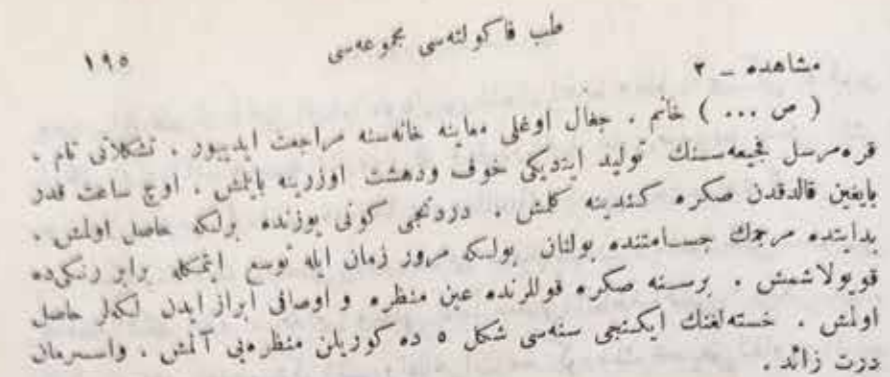 طب فاكولته‌سی مجموعه‌سی
١٩٥
مشاهده ـ ٢
( ص ... ) خانم . جغال اوغلی معاینه خانه‌سنه مراجعت ایدییور . تشكلاتی تام .
قره‌مرسل فجیعه‌سنك تولید ایتدیكی خوف ودهشت اوزرینه بایلمش . اوچ ساعت قدر
بایغین قالدقدن صكره كندینه كلمش . دردنجی كونی یوزنده برلكه حاصل اولمش .
بدایتده مرجمك جسامتنده بولنان بولكه مرور زمان ایله توسع ایتمكله برابر رنكی‌ده
قویولاشمش . برسنه صكره قوللرنده عین منظره و اوصافی ابراز ایدن لكه‌لر حاصل
اولمش . خسته‌لغنك ایكنجی سنه‌سی شكل ٥ ده كوریلن منظره‌یی آلمش . واسرمان
درت زائد .